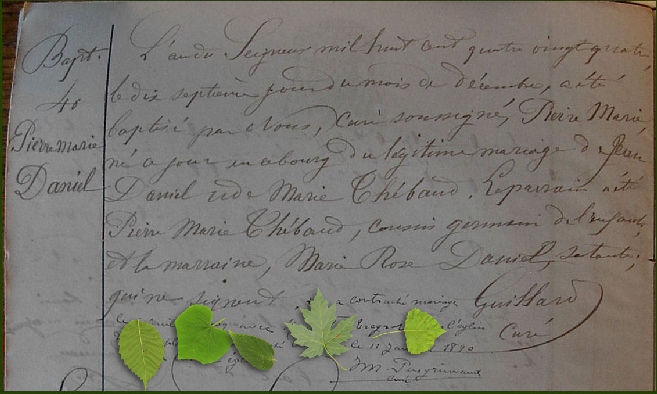 Bapt.
40
Pierre Marie
Daniel
L'an du Seigneur mil huit cent quatre vingt quatre
le dix septième jour du mois de décembre, a été
baptisé par Nous, Curé soussigné, Pierre Marie
né ce jour en ce bourg du légitime mariage de Jean
Daniel et de Marie Thébaud. Le parrain a été
Pierre Marie Thébaud, cousin germain de l'enfant
et la marraine, Marie Rose Daniel, sa tante,
qui ne signent
Guillard
Curé
a contracté mariage
l'église